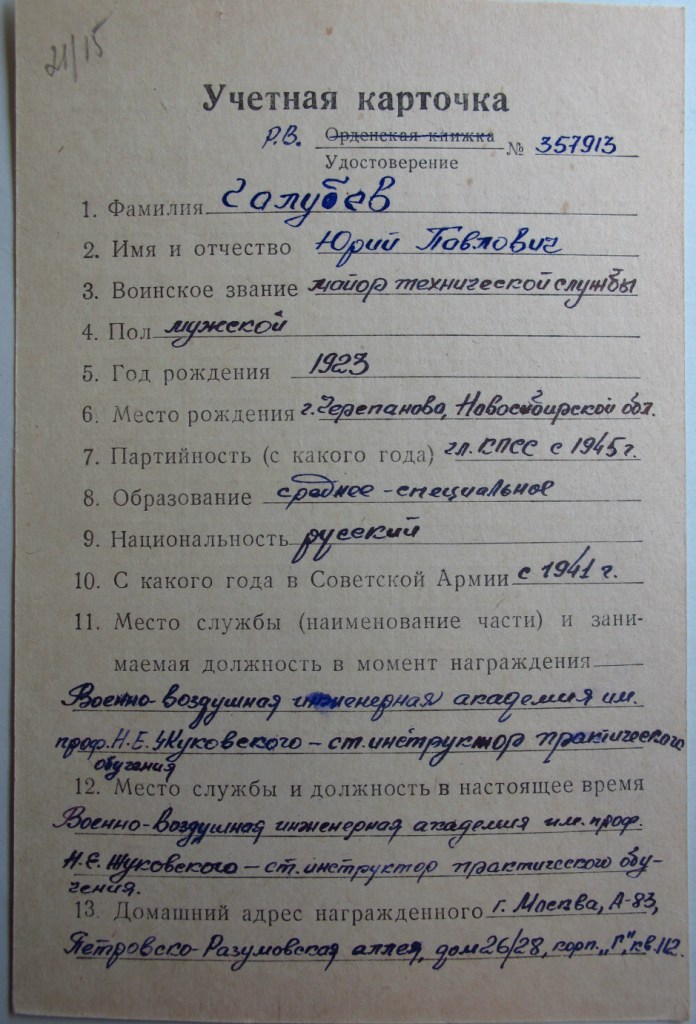 21/15
Учетная карточка
Р.В. Орденская книжка № 357913
Удостоверение
1. Фамилия Галубев
2. Имя и отчество Юрий Павлович
3. Воинское звание майор технической службы
4. Пол мужской
5. Год рождения 1923
6. Место рождения г. Черепаново, Новосибирской обл.
7. Партийность (с какого года) чл. КПСС с 1945 г.
8. Образование среднее-специальное
9. Национальность русский
10. С какого года в Советской Армии с 1941 г.
11. Место службы (наименование части) и зани-
маемая должность в момент награждения
Военно-воздушная инженерная академия им.
проф. Н.Е. Жуковского – ст. инструктор практического
обучения
12. Место службы и должность в настоящее время
Военно-Воздушная инженерная академия им. проф.
Н.Е. Жуковского – ст. инструктор практического обу-
чения.
13. Домашний адрес награжденного г. Москва, А-83,
Петровско-Разумовская аллея, дом 26/28, корп. „Г", кв. 112.